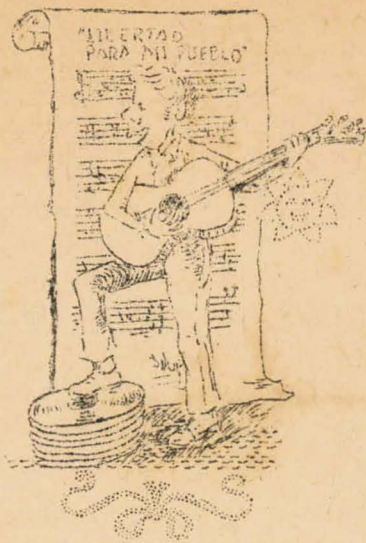 "LIBERTAD
PARA MI PUEBLO"